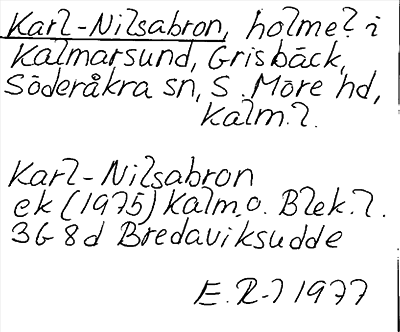 Karl-Nilsabron, holme? i
Kalmarsund, Grisbäck,
Söderåkra sn, S. Möre hd,
Kalm.l.
Karl-Nilsabron
ek (1975) Kalm. o. Blek.l.
3G 8d Bredaviksudde
E.R-l 1977